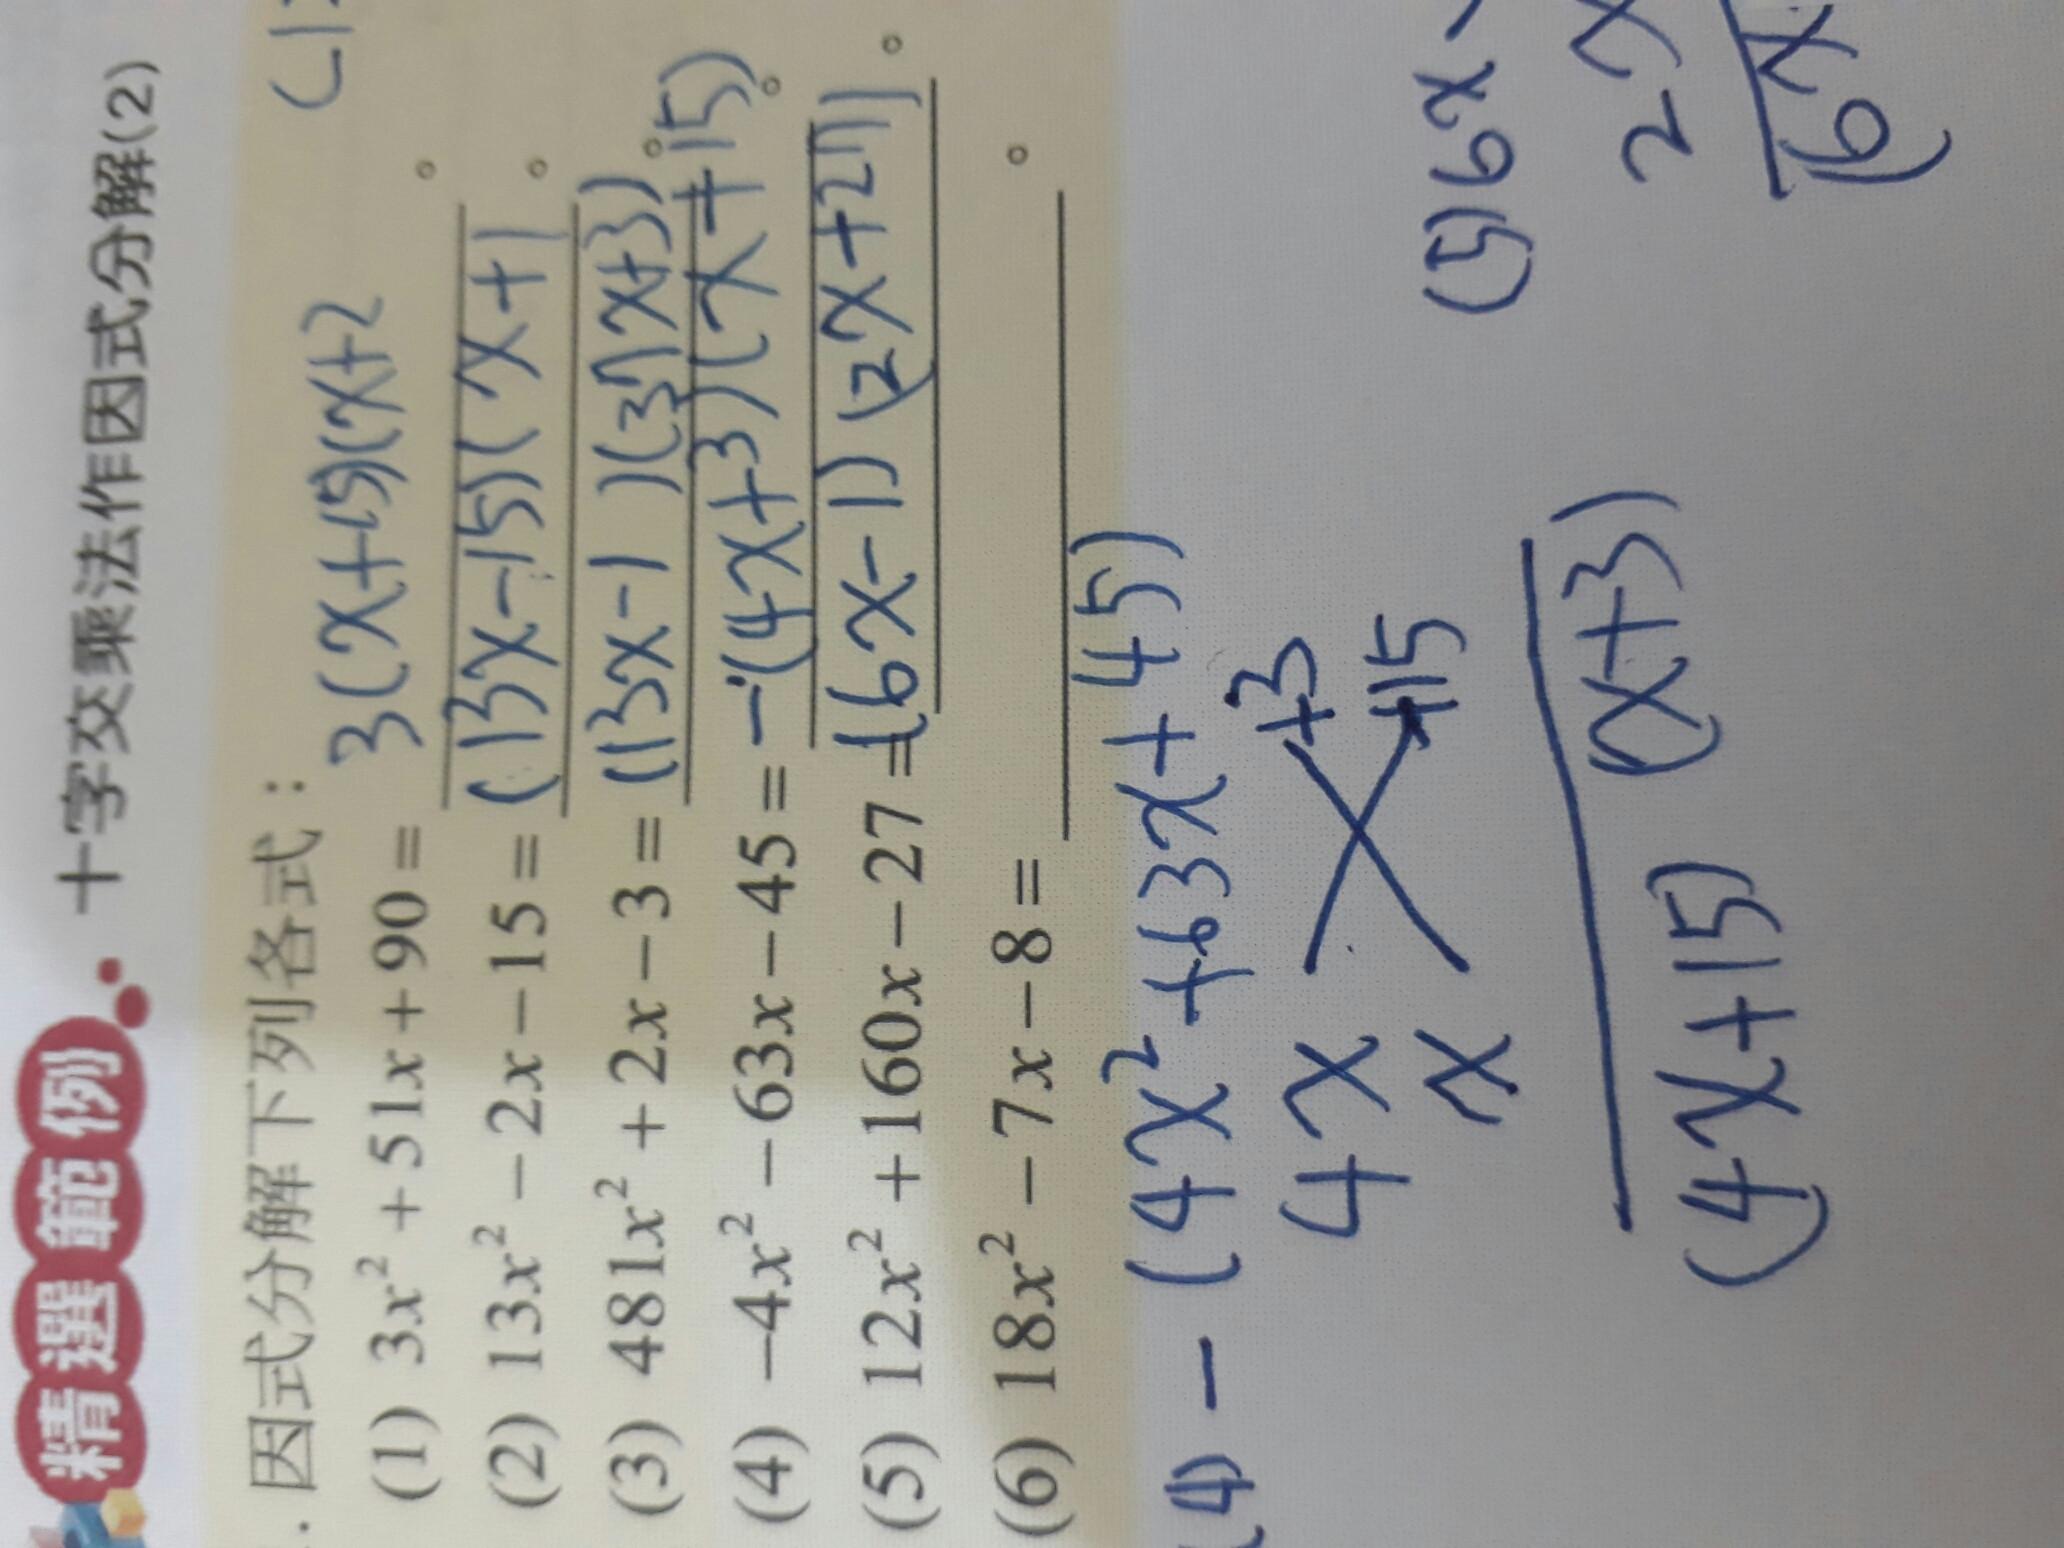 精選範例 十字交乘法作因式分解(2)
因式分解下列各式：
(1) 3x² + 51x + 90 = 3(x+15)(x+2 。
(2) 13x² − 2x − 15 = (13x−15)(x+1 。
(3) 481x² + 2x − 3 = (13x−1)(37x+3) 。
(4) −4x² − 63x − 45 = −(4x+3)(x+15) 。
(5) 12x² + 160x − 27 = (6x−1)(2x+27) 。
(6) 18x² − 7x − 8 = 。
(4) −(4x²+63x+45)
4x +3
x +15
(4x+15) (x+3)
(5) 6x
2x
(6x